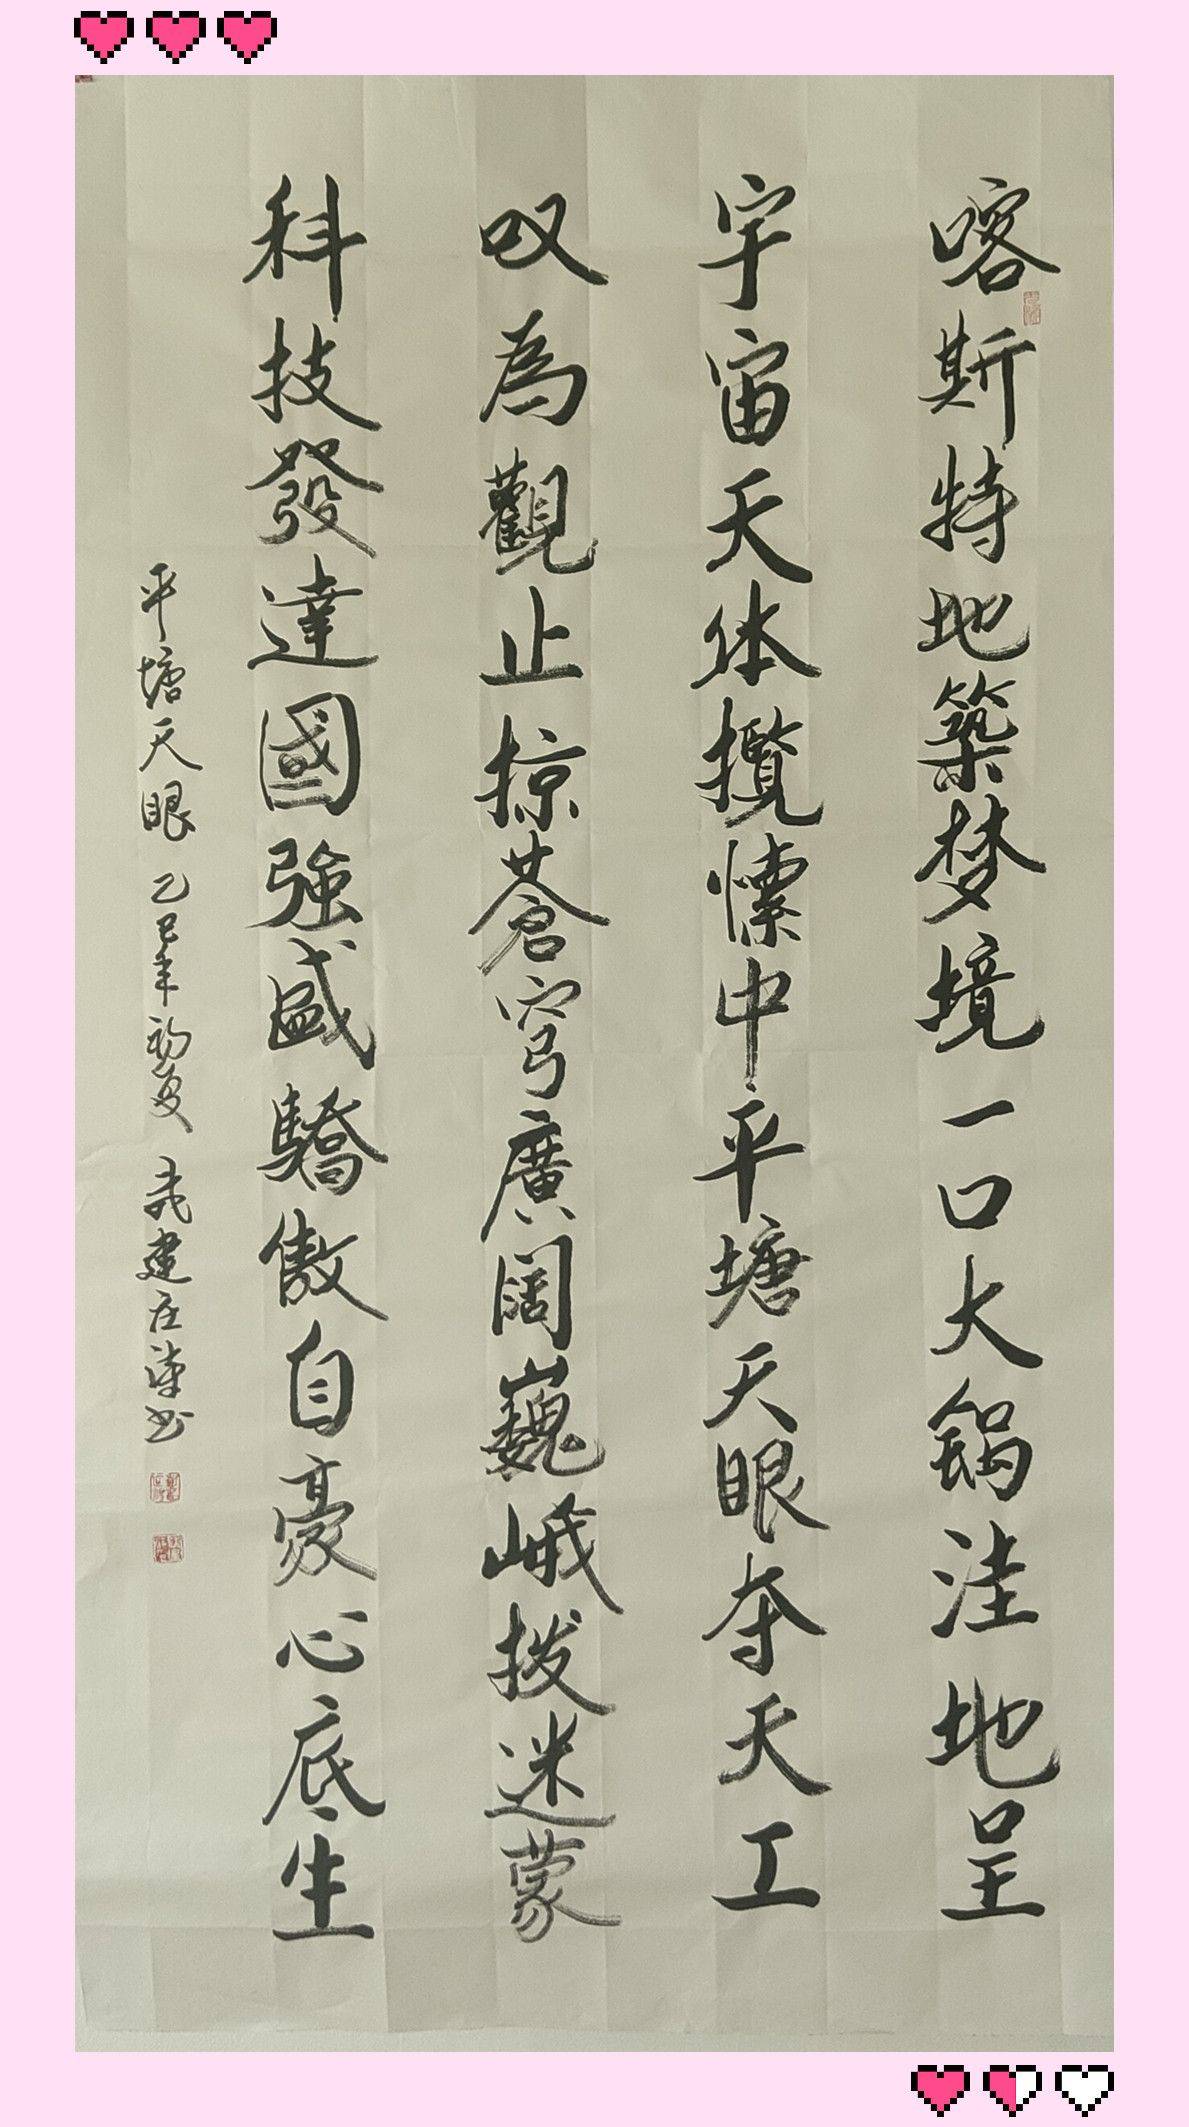 喀斯特地築梦境一口大锅洼地呈
宇宙天体揽愫中平塘天眼夺天工
叹為觀止掠蒼穹廣阔巍峨拨迷蒙
科技發達國強盛驕傲自豪心底生
平塘天眼 乙巳年初夏 建庄 书